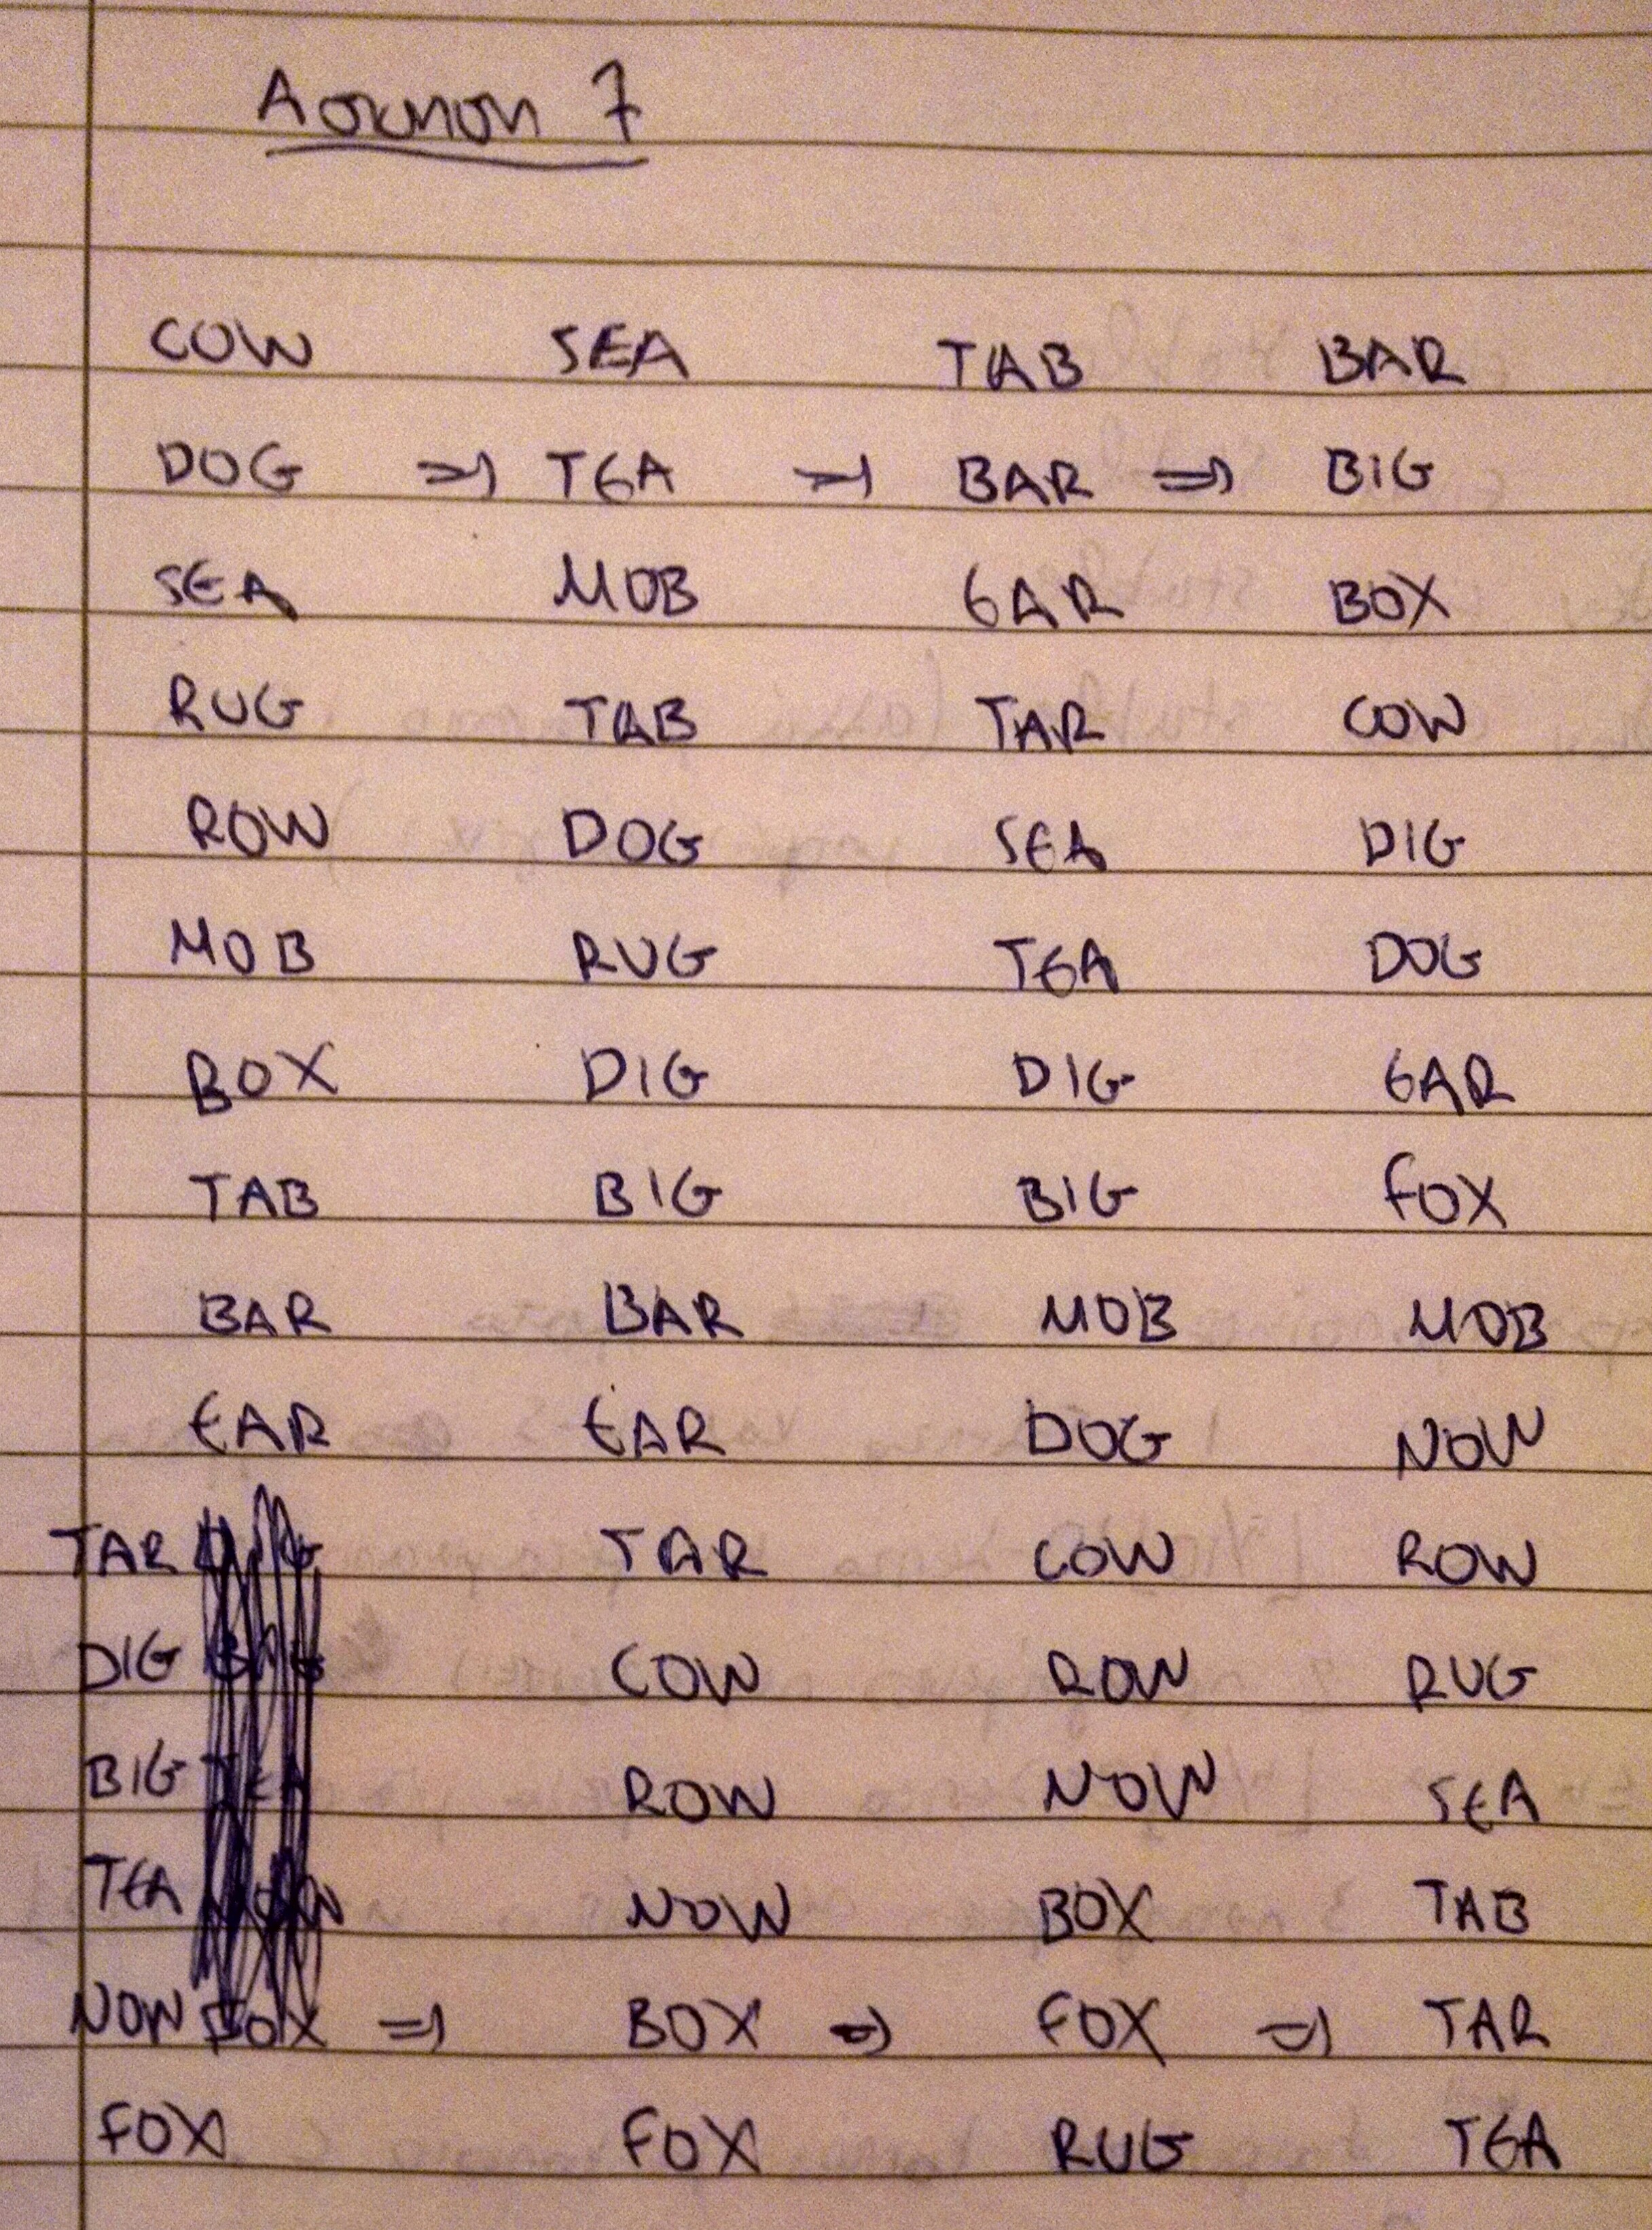 Άσκηση 7
COW SEA TAB BAR
DOG ⇒ TEA ⇒ BAR ⇒ BIG
SEA MOB EAR BOX
RUG TAB TAR COW
ROW DOG SEA DIG
MOB RUG TEA DOG
BOX DIG DIG EAR
TAB BIG BIG FOX
BAR BAR MOB MOB
EAR EAR DOG NOW
TAR TAR COW ROW
DIG COW ROW RUG
BIG ROW NOW SEA
TEA NOW BOX TAB
NOW FOX ⇒ BOX ⇒ FOX ⇒ TAR
FOX FOX RUG TEA